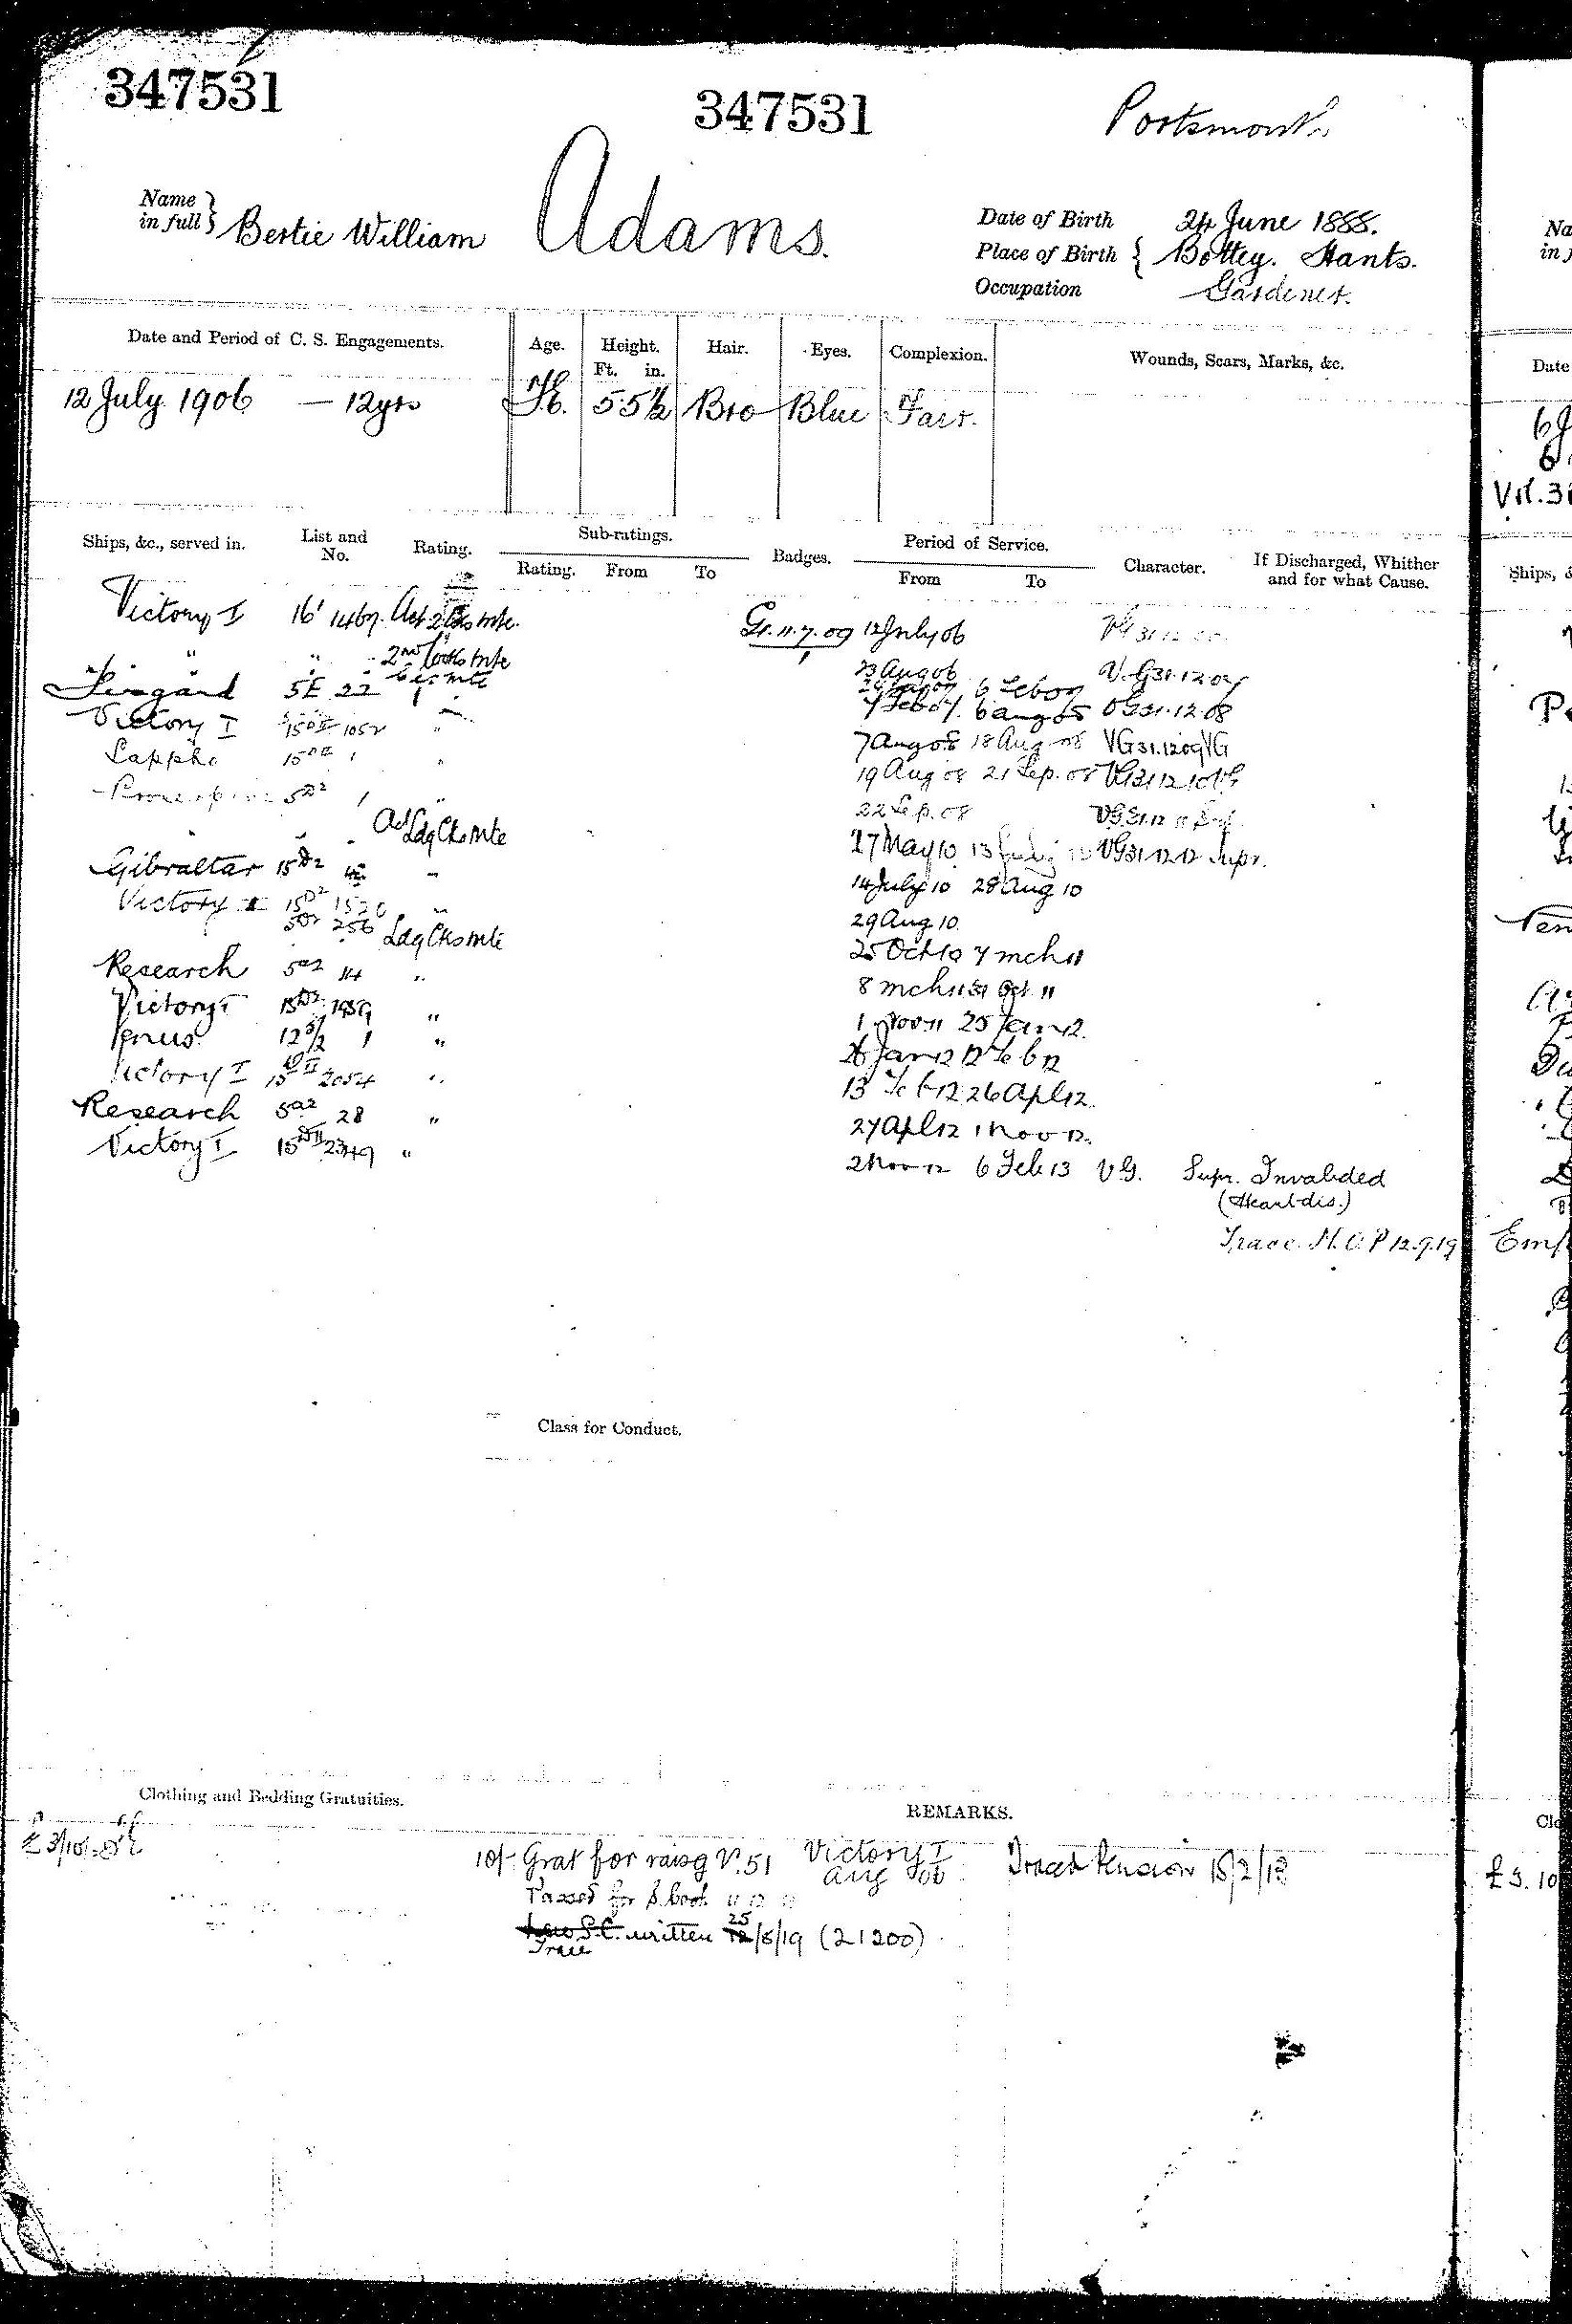 347531
347531
Portsmouth
Name in full Bertie William Adams.
Date of Birth 24 June 1888.
Place of Birth Botley. Hants.
Occupation Gardener.
Date and Period of C. S. Engagements.
Age. Height. Ft. in. Hair. Eyes. Complexion. Wounds, Scars, Marks, &c.
12 July 1906 — 12 yrs 5 5½ Bro Blue Fair.
Ships, &c., served in. List and No. Rating. Sub-ratings. Rating. From To Badges. Period of Service. From To Character. If Discharged, Whither and for what Cause.
Victory I 16' 1467. Act 2 Cks mte. Gr. 11.7.09 12 July 06
" " 2nd Cooks Mte 23 Aug 06 V.G 31.12.07
Fisgard 5E 22 6 Feb 07
7 Feb 07. 6 Aug 08 VG 31.12.08
Victory I 15 DII 1052 " 7 Aug 08 18 Aug 08 VG 31.12 09 VG
Sappho 15 1 " 19 Aug 08 21 Sep. 08 VG 31 12 10 VG
Proserpine 5 D2 1 " 22 Sep. 08 VG 31.12 11
" " Act Ldg Cks Mte 27 May 10 13 July 10 VG 31 12 12 Supr.
Gibraltar 15 D2 " 14 July 10 28 Aug 10
Victory I 15 D2 1520 " 29 Aug 10.
256 Ldg Cks Mte 25 Oct 10 7 Mch 11
Research 5 a2 114 " 8 Mch 11 31 Oct 11
Victory I 15 D2 1959 " 1 Nov 11 25 Jan 12.
Venus 12 5/2 1 " 26 Jan 12 12 Feb 12
Victory I 15 DII 2054 " 13 Feb 12 26 Apl 12.
Research 5 a2 28 " 27 Apl 12 1 Nov 12.
Victory I 15 DII 2349 " 2 Nov 12 6 Feb 13 V.G. Supr. Invalided
(Heart dis.)
Trace. M.O.P 12.9.19
Class for Conduct.
Clothing and Bedding Gratuities.
REMARKS.
£3/10/-
10/- Grat for raisg V. 51 Victory I Aug 06
Traced Pension 18/2/13
Passed for S. Cook
written 25/8/19 (21200)
Trace